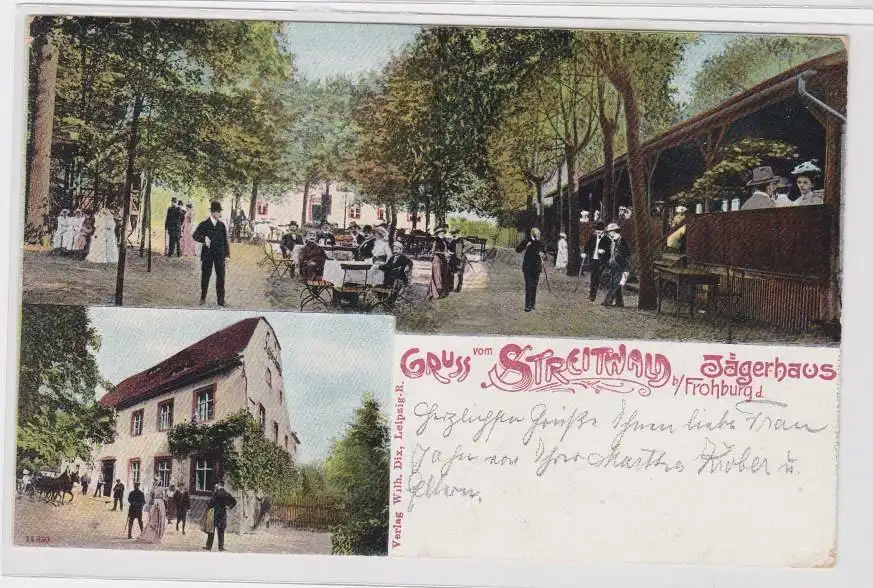 Gruss vom Streitwald Jägerhaus
b/Frohburg d.
Herzlichen Grüße Ihnen liebe Frau
Jahn von Ihrer Martha Kröber u.
Eltern.
Verlag Wilh. Dix, Leipzig-R.